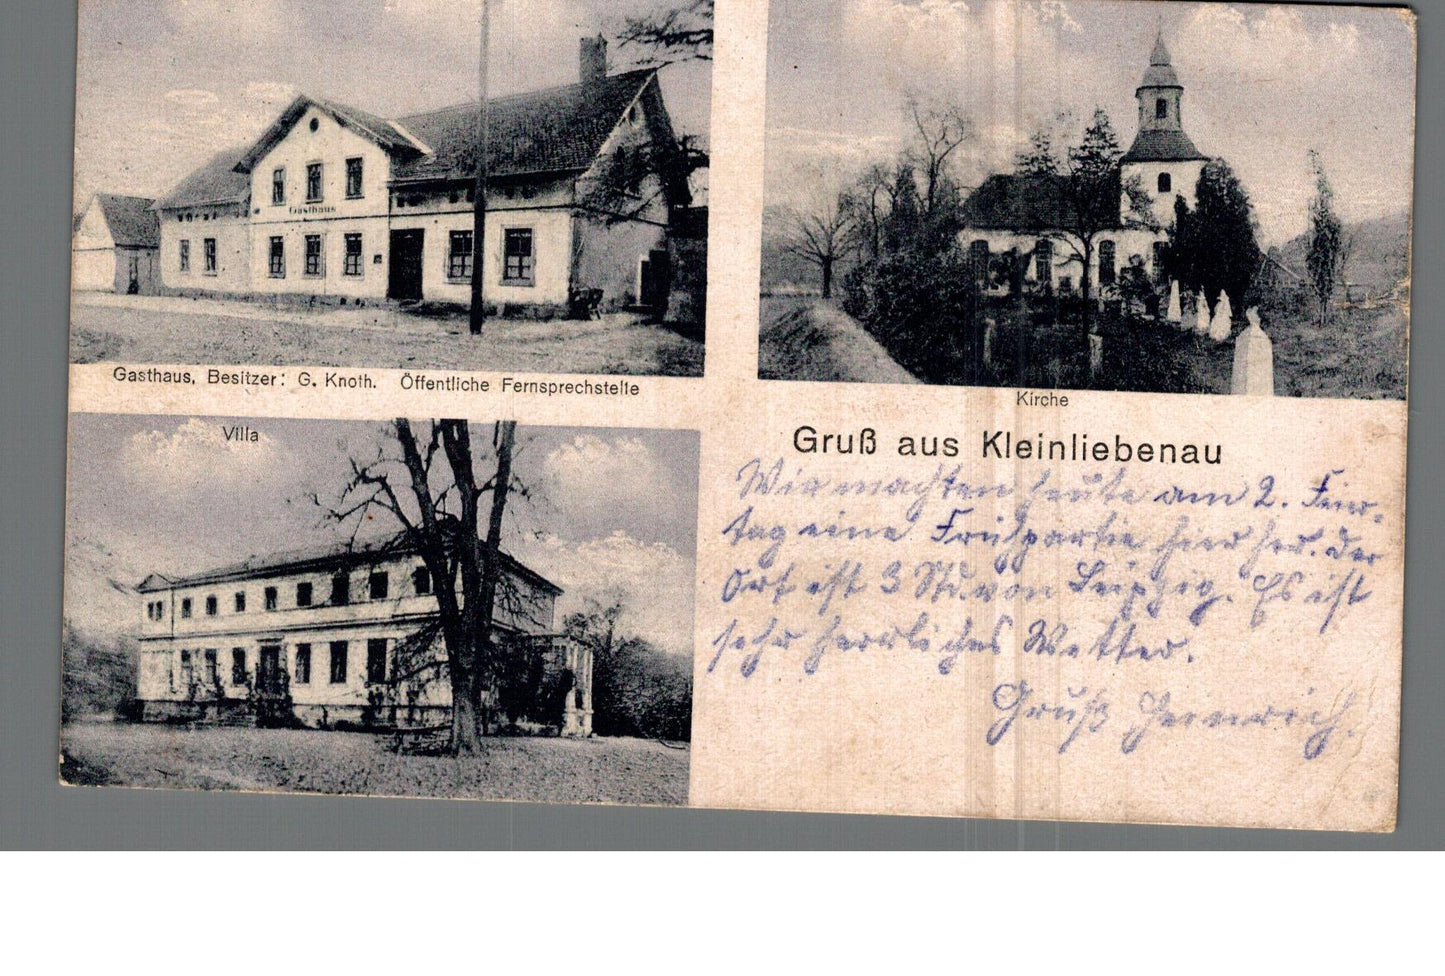 Gasthaus
Gasthaus, Besitzer: G. Knoth. Öffentliche Fernsprechstelle
Kirche
Villa
Gruß aus Kleinliebenau
Wir machten heute am 2. Feier-
tag eine Frühpartie hier her. Der
Ort ist 3 Std. von Leipzig. Es ist
sehr herrliches Wetter.
Gruß Heinrich.